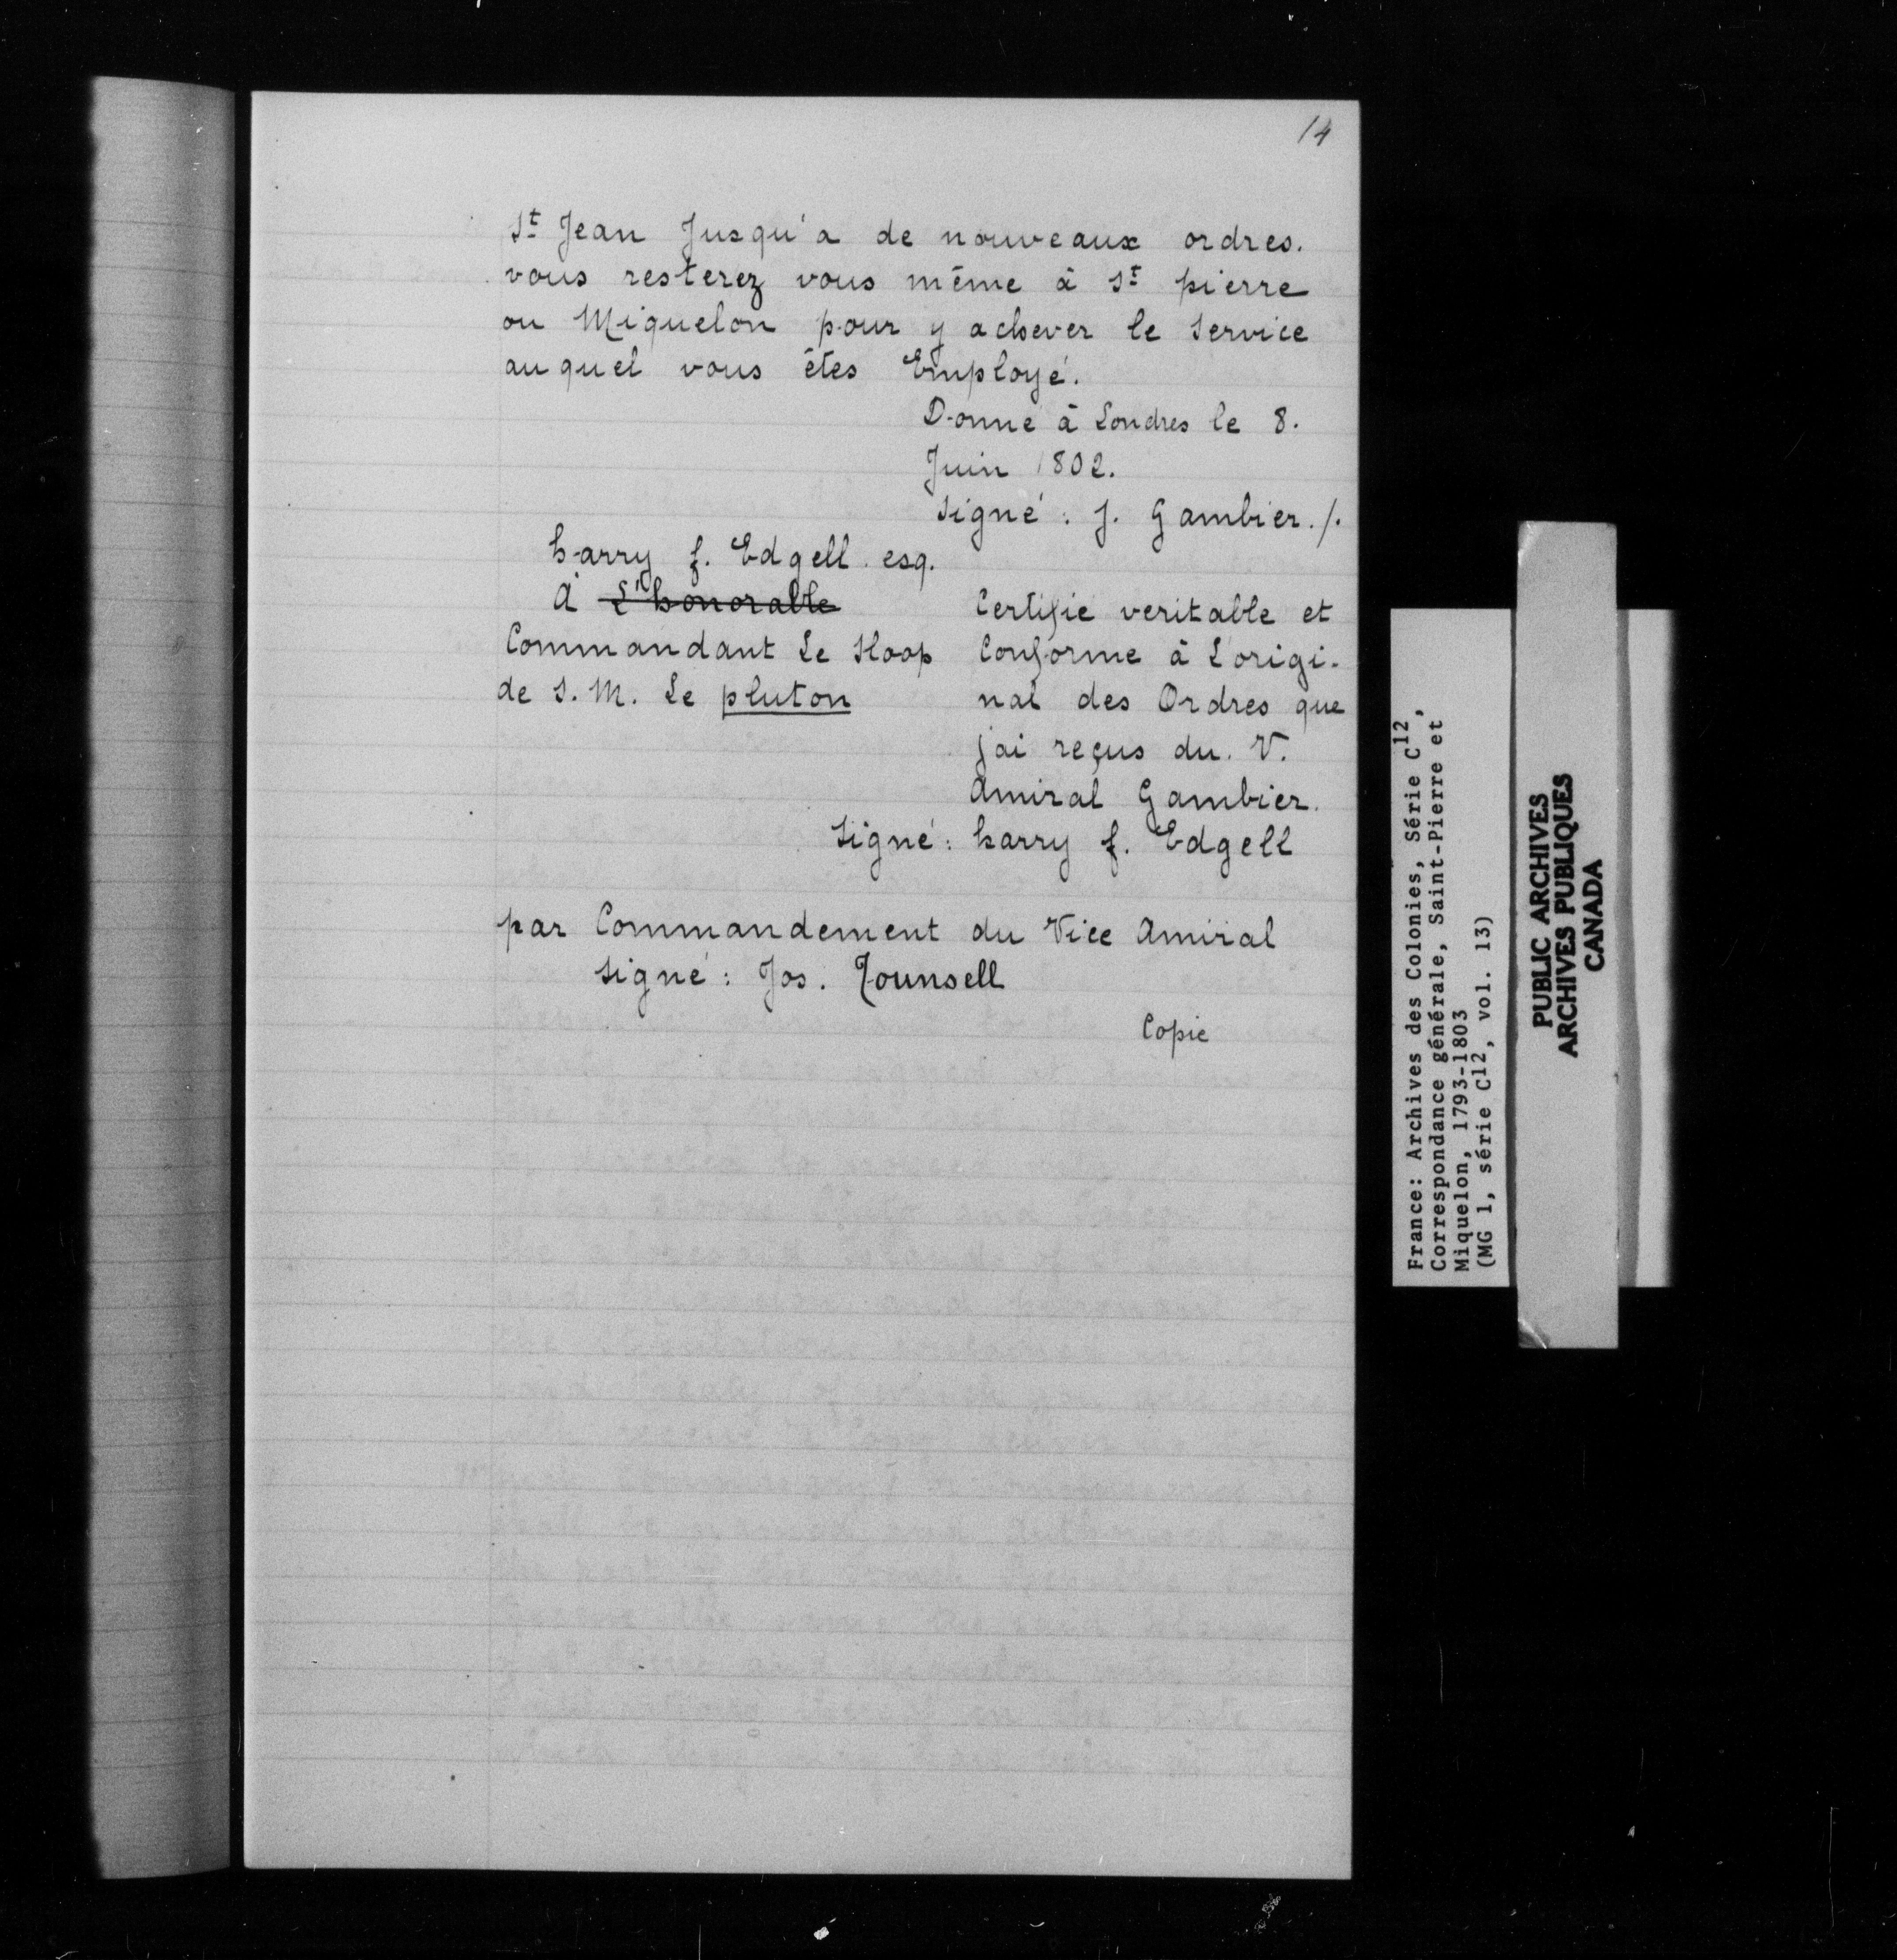 14
St Jean Jusqu'a de nouveaux ordres.
vous resterez vous même à St pierre
ou Miquelon pour y achever le Service
auquel vous êtes Employé.
Donné à Londres le 8.
Juin 1802.
Signé : J. Gambier./.
harry f. Edgell esq.
A L'honorable
Commandant Le Sloop
de S. M. Le pluton
Certifie veritable et
Conforme à L'origi-
nal des Ordres que
j'ai reçus du. V.
Amiral Gambier.
Signé : harry f. Edgell
par Commandement du Vice Amiral
Signé : Jos. Tounsell
Copie
France: Archives des Colonies, Série C12,
Correspondance générale, Saint-Pierre et
Miquelon, 1793-1803
(MG 1, série C12, vol. 13)
PUBLIC ARCHIVES
ARCHIVES PUBLIQUES
CANADA